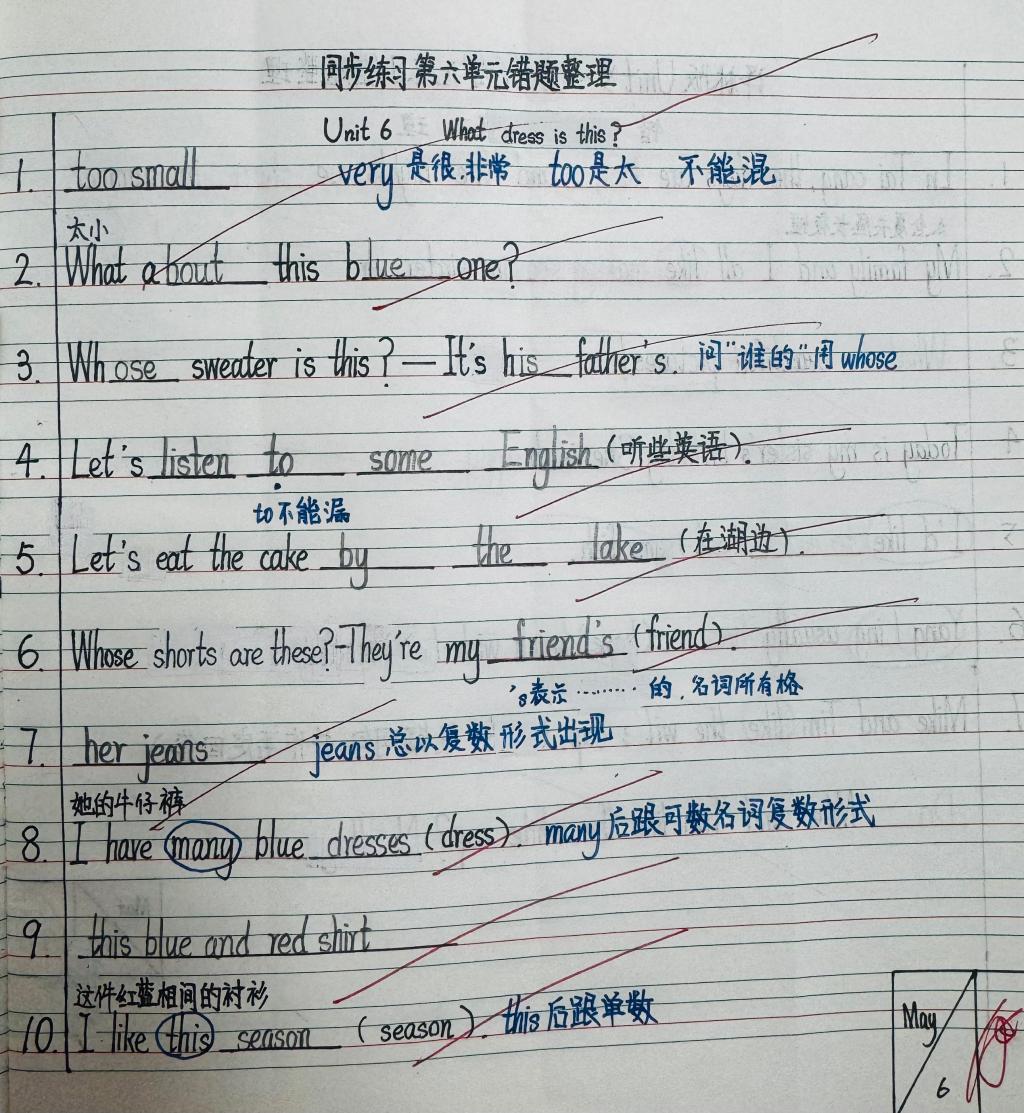 同步练习第六单元错题整理
Unit 6 What dress is this?
1. too small very 是很,非常 too是太 不能混
太小
2. What about this blue one?
3. Whose sweater is this? — It's his father's. 问"谁的"用 whose
4. Let's listen to some English (听些英语).
to不能漏
5. Let's eat the cake by the lake (在湖边).
6. Whose shorts are these?-They're my friend's (friend).
's表示………的,名词所有格
7. her jeans jeans 总以复数形式出现
她的牛仔裤
8. I have many blue dresses (dress). many后跟可数名词复数形式
9. this blue and red shirt
这件红蓝相间的衬衫
10. I like this season (season). this后跟单数
May
6